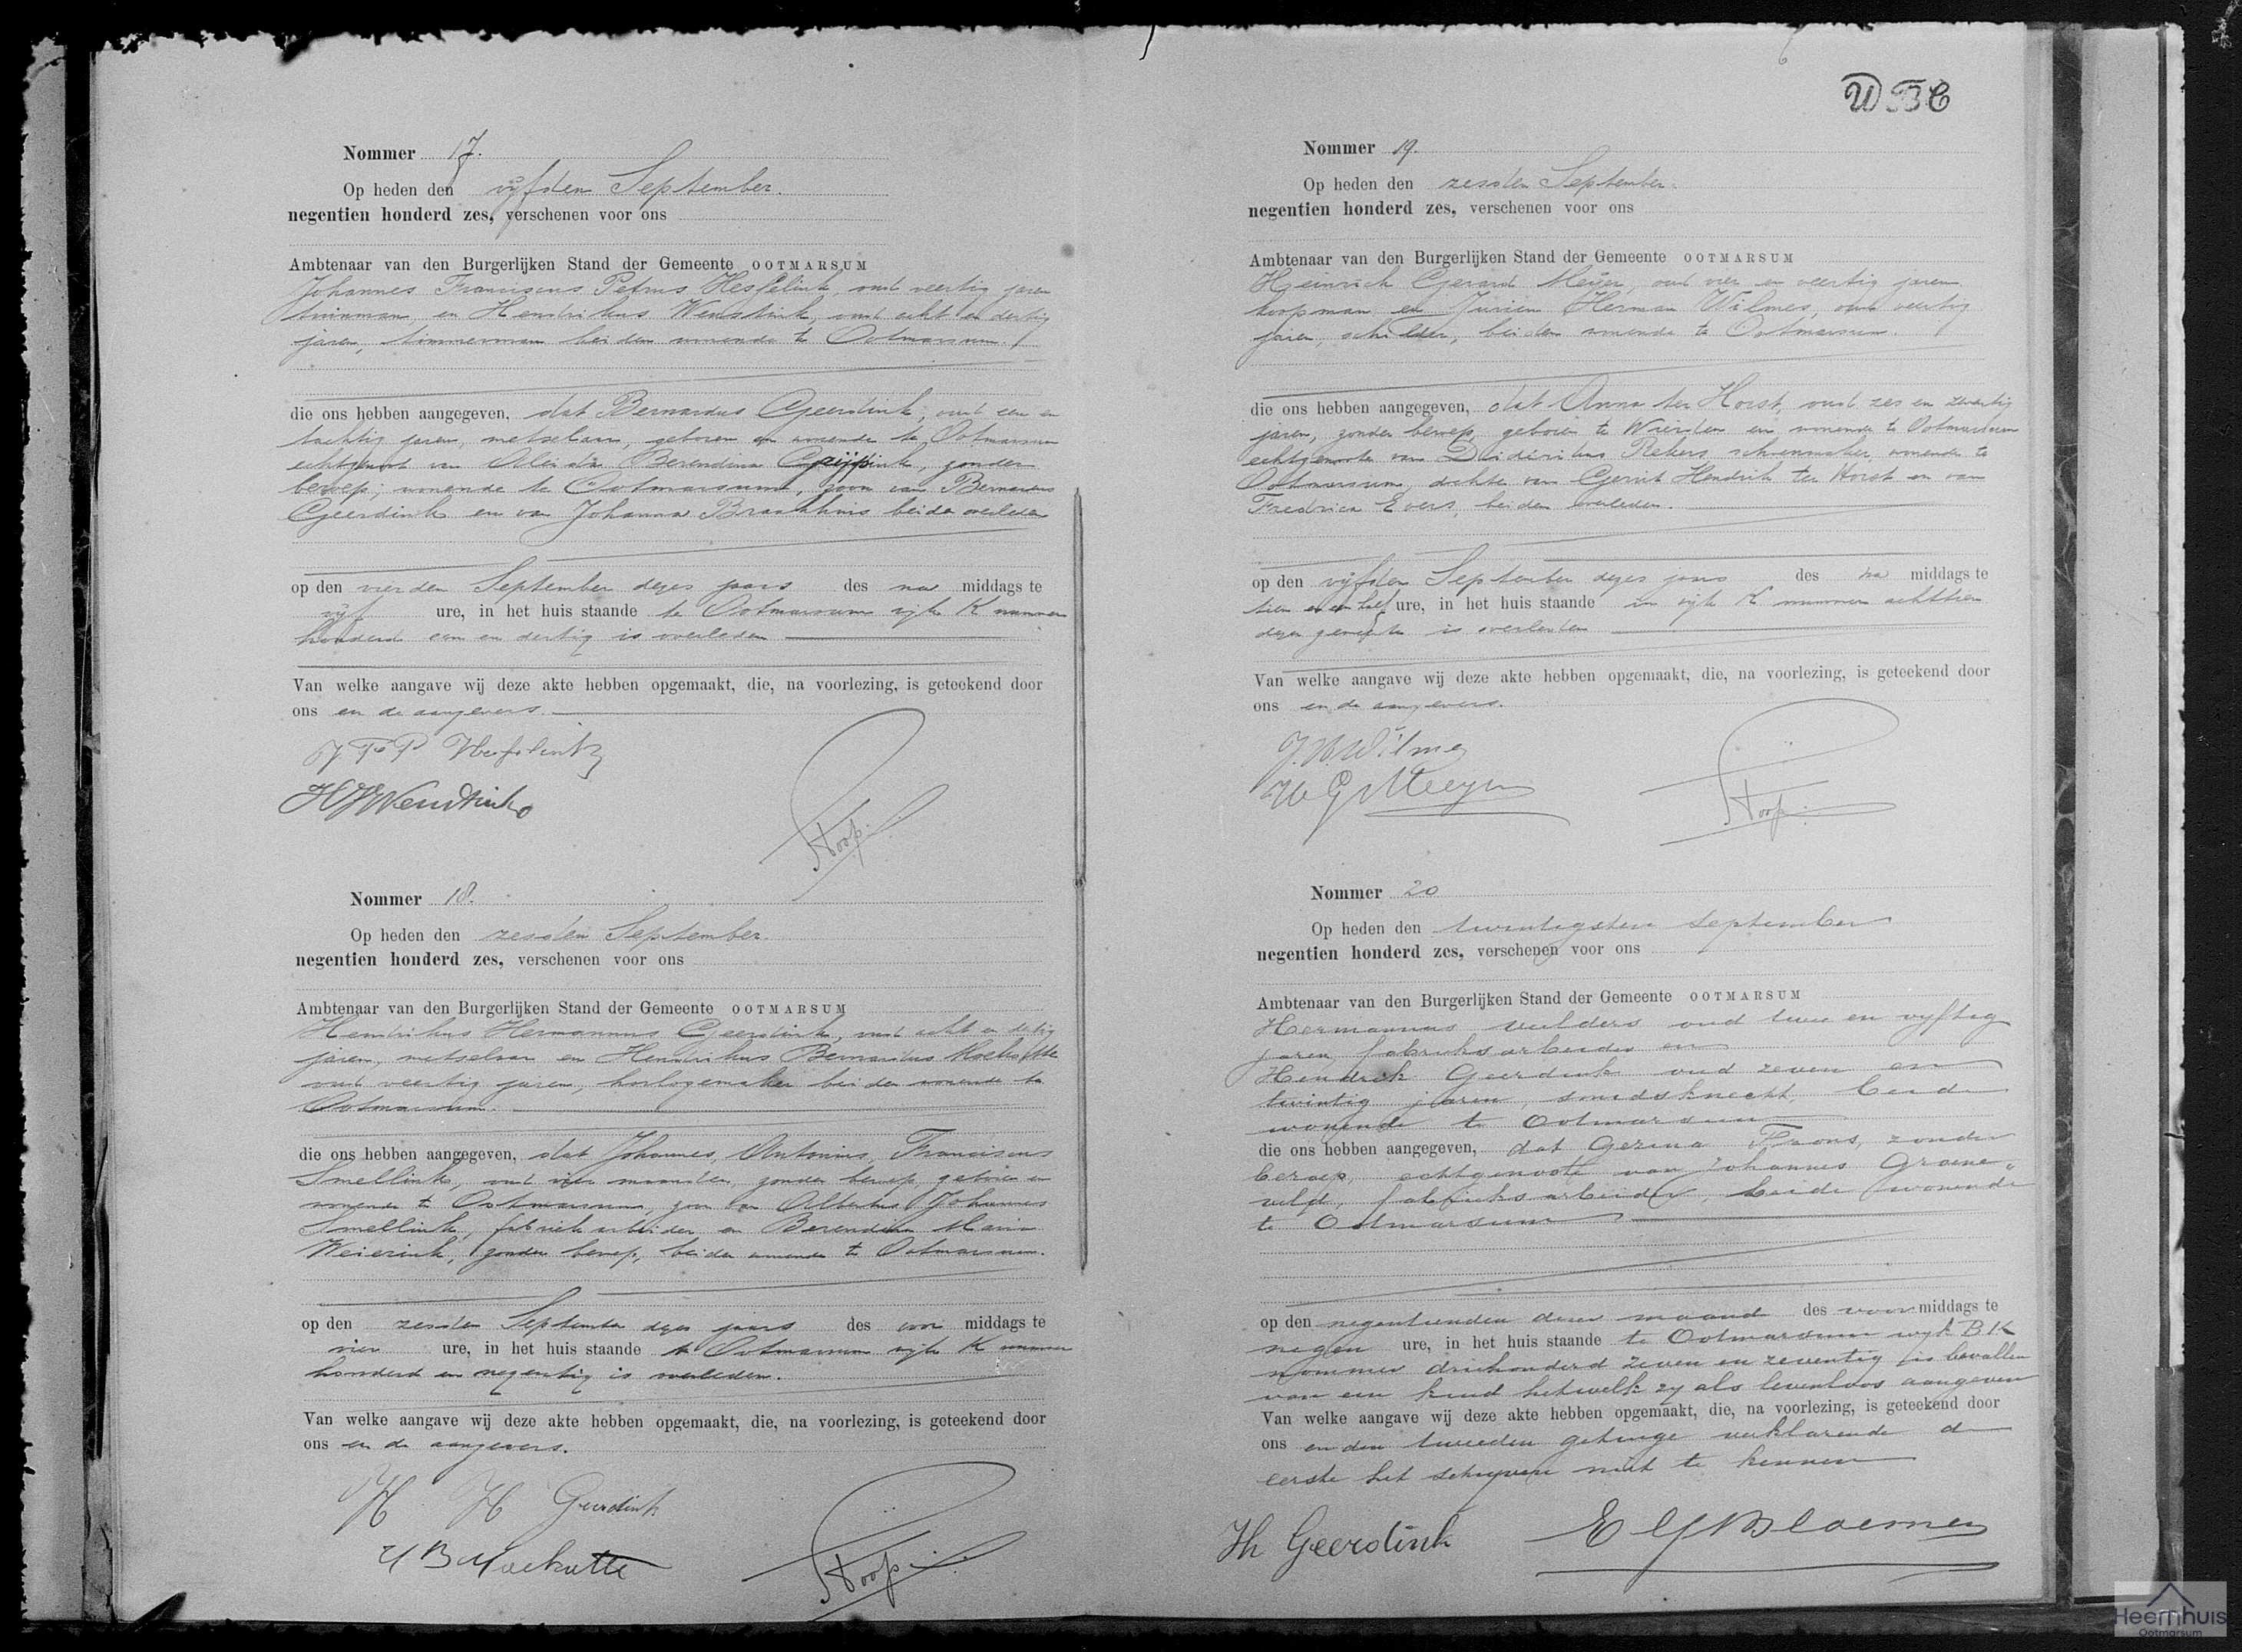 Nommer 17.
Op heden den vijfden September.
negentien honderd zes, verschenen voor ons
Ambtenaar van den Burgerlijken Stand der Gemeente OOTMARSUM
Johannes Franciscus Petrus Hesselink, oud veertig jaren
tuinman, en Hendrikus Wenstink, oud acht en dertig
jaren, timmerman beiden wonende te Ootmarsum.
die ons hebben aangegeven, dat Bernardus Geerdink, oud een en
tachtig jaren, metselaar, geboren en wonende te Ootmarsum
echtgenoot van Aleida Berendina, zonder
beroep, wonende te Ootmarsum, zoon van Bernardus
Geerdink en van Johanna Braakhuis beiden overleden
op den vierden September dezes jaars des na middags te
vijf ure, in het huis staande te Ootmarsum wijk K nummer
honderd een en dertig is overleden
Van welke aangave wij deze akte hebben opgemaakt, die, na voorlezing, is geteekend door
ons en de aangevers.
J F P Hesselink
H Wenstink
Stoop
Nommer 18.
Op heden den zesden September.
negentien honderd zes, verschenen voor ons
Ambtenaar van den Burgerlijken Stand der Gemeente OOTMARSUM
Hendrikus Hermannus Geerdink, oud acht en dertig
jaren, metselaar en Hendrikus Bernardus
oud veertig jaren, horlogemaker beiden wonende te
Ootmarsum.
die ons hebben aangegeven, dat Johannes, Antonius, Franciscus
Smellink, oud vier maanden, zonder beroep, geboren en
wonende te Ootmarsum, zoon van Albertus Johannes
Smellink, fabriekarbeider en Berendina Maria
Weierink, zonder beroep, beiden wonende te Ootmarsum.
op den zesden September dezes jaars des voor middags te
vier ure, in het huis staande te Ootmarsum wijk K nummer
honderd en negentig is overleden.
Van welke aangave wij deze akte hebben opgemaakt, die, na voorlezing, is geteekend door
ons en de aangevers.
H H Geerdink
H B
Stoop
W B C
Nommer 19.
Op heden den zesden September.
negentien honderd zes, verschenen voor ons
Ambtenaar van den Burgerlijken Stand der Gemeente OOTMARSUM
Heinrich Gerard Meijer, oud vier en veertig jaren
koopman en Jurien Herman Wilmes, oud veertig
jaren, schilder, beiden wonende te Ootmarsum.
die ons hebben aangegeven, dat Anna ter Horst, oud zes en
jaren, zonder beroep, geboren te Wierden en wonende te Ootmarsum
echtgenoote van Rekers schoenmaker, wonende te
Ootmarsum, dochter van Gerrit Hendrik ter Horst en van
Fredrica Evers, beiden overleden.
op den vijfden September dezes jaars des na middags te
tien en een half ure, in het huis staande in wijk K nummer achttien
dezer gemeente is overleden
Van welke aangave wij deze akte hebben opgemaakt, die, na voorlezing, is geteekend door
ons en de aangevers.
J. H. Wilmes
H G Meyer
Stoop
Nommer 20
Op heden den twintigsten September
negentien honderd zes, verschenen voor ons
Ambtenaar van den Burgerlijken Stand der Gemeente OOTMARSUM
Hermannus Mulders oud twee en vyftig
jaren, fabrieksarbeider en
Hendrik Geerdink oud zeven en
twintig jaren, smidsknecht, beide
wonende te Ootmarsum
die ons hebben aangegeven, dat Gezina, zonder
beroep, echtgenoote van Johannes Groene„
veld, fabrieksarbeider, beide wonende
te Ootmarsum
op den negentienden dezer maand des voor middags te
negen ure, in het huis staande te Ootmarsum wyk BK
nommer driehonderd zeven en zeventig is bevallen
van een kind hetwelk zy als levenloos aangeven
Van welke aangave wij deze akte hebben opgemaakt, die, na voorlezing, is geteekend door
ons en den tweeden getuige verklarende de
eerste het schryven niet te kennen
Hh Geerdink
Bloemen
Heemhuis
Ootmarsum